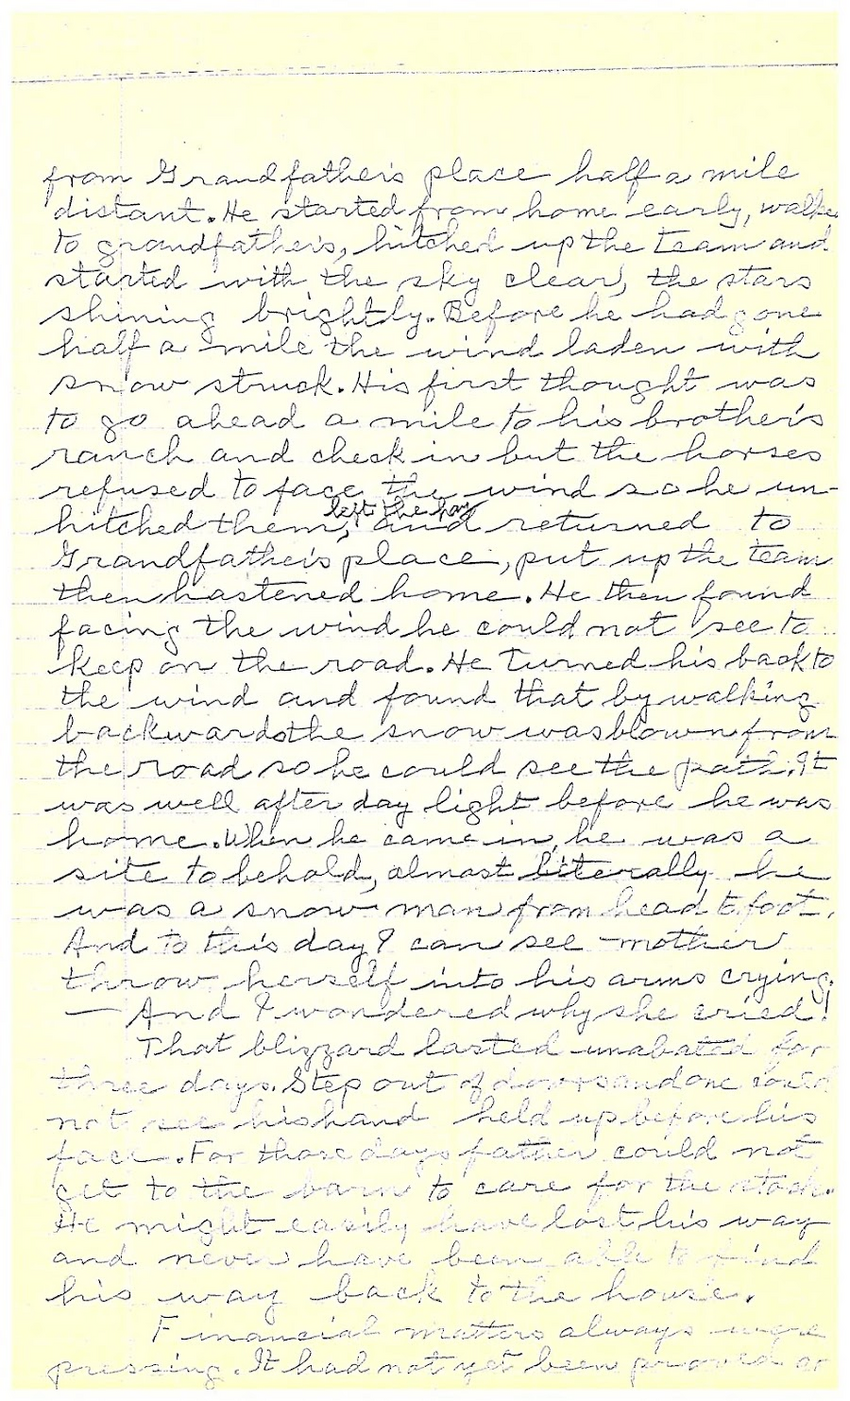 from Grandfather's place half a mile
distant. He started from home early, walked
to grandfather's, hitched up the team and
started with the sky clear, the stars
shining brightly. Before he had gone
half a mile the wind laden with
snow struck. His first thought was
to go ahead a mile to his brother's
ranch and check in but the horses
refused to face the wind so he un-
left the hay
hitched them, and returned to
Grandfather's place, put up the team
then hastened home. He then found
facing the wind he could not see to
keep on the road. He turned his back to
the wind and found that by walking
backwards the snow was blown from
the road so he could see the path. It
was well after day light before he was
home. When he came in, he was a
site to behold, almost literally he
was a snow man from head to foot.
And to this day I can see mother
throw herself into his arms crying.
— And I wondered why she cried!
That blizzard lasted unabated for
three days. Step out of doors and one could
not see his hand held up before his
face. For those days father could not
get to the barn to care for the stock.
He might easily have lost his way
and never have been able to find
his way back to the house.
Financial matters always were
pressing. It had not yet been proved or